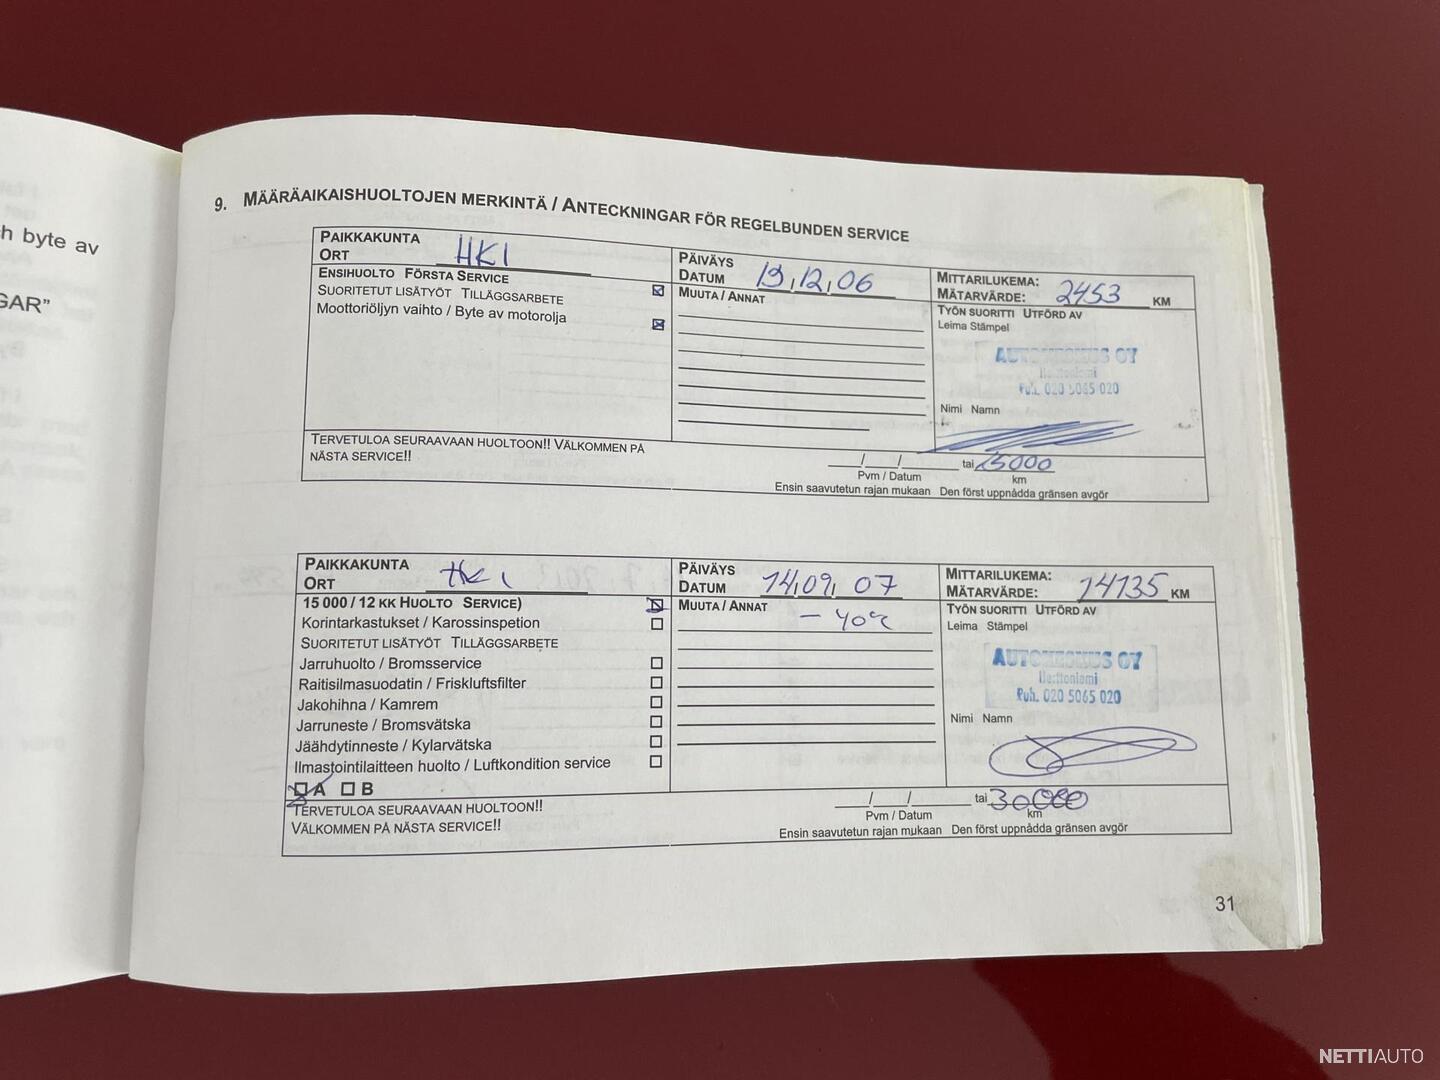 h byte av
GAR"
9. MÄÄRÄAIKAISHUOLTOJEN MERKINTÄ / ANTECKNINGAR FÖR REGELBUNDEN SERVICE
PAIKKAKUNTA
ORT HKI
PÄIVÄYS
DATUM 13,12,06
MITTARILUKEMA:
MÄTARVÄRDE: 2453 KM
ENSIHUOLTO FÖRSTA SERVICE
SUORITETUT LISÄTYÖT TILLÄGGSARBETE
Moottoriöljyn vaihto / Byte av motorolja
MUUTA / ANNAT
TYÖN SUORITTI UTFÖRD AV
Leima Stämpel
AUTOKESKUS OY
Herttoniemi
Puh. 020 5065 020
Nimi Namn
TERVETULOA SEURAAVAAN HUOLTOON!! VÄLKOMMEN PÅ
NÄSTA SERVICE!!
/ / tai 15000
Pvm / Datum km
Ensin saavutetun rajan mukaan Den först uppnådda gränsen avgör
PAIKKAKUNTA
ORT HKI
PÄIVÄYS
DATUM 14,09, 07
MITTARILUKEMA:
MÄTARVÄRDE: 14135 KM
15 000 / 12 KK HUOLTO SERVICE)
Korintarkastukset / Karossinspetion
SUORITETUT LISÄTYÖT TILLÄGGSARBETE
Jarruhuolto / Bromsservice
Raitisilmasuodatin / Friskluftsfilter
Jakohihna / Kamrem
Jarruneste / Bromsvätska
Jäähdytinneste / Kylarvätska
Ilmastointilaitteen huolto / Luftkondition service
A B
MUUTA / ANNAT
- 40°C
TYÖN SUORITTI UTFÖRD AV
Leima Stämpel
AUTOKESKUS OY
Herttoniemi
Puh. 020 5065 020
Nimi Namn
TERVETULOA SEURAAVAAN HUOLTOON!!
VÄLKOMMEN PÅ NÄSTA SERVICE!!
/ / tai 30000
Pvm / Datum km
Ensin saavutetun rajan mukaan Den först uppnådda gränsen avgör
31
NETTIAUTO